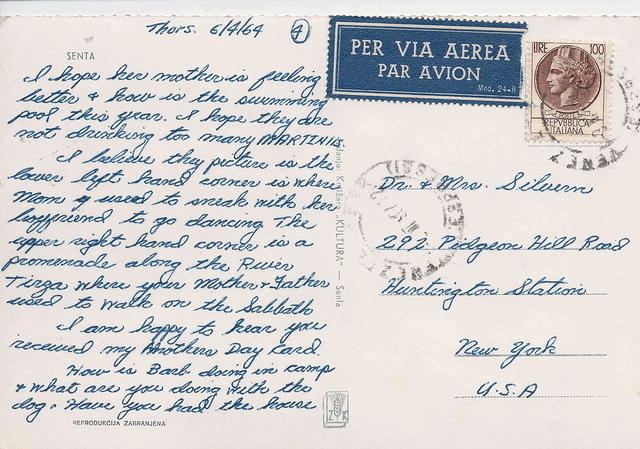 Thurs. 6/4/64 4
SENTA
I hope her mother is feeling
better & how is the swimming
pool this year. I hope they are
not drinking too many MARTINIS
I believe they picture is the
lower left hand corner is where
Mom y used to sneak with her
boyfriend to go dancing The
upper right hand corner is a
promenade along the River
Tirza where your Mother & Father
used to walk on the Sabbath
I am happy to hear you
received my Mothers Day Card.
How is Barb doing in camp
& what are you doing with the
dog. Have you had the house
REPRODUKCIJA ZABRANJENA
"KULTURA" — Senta
Z K
PER VIA AEREA
PAR AVION
Mod. 24-R
LIRE 100
POSTE
REPVBBLICA
ITALIANA
VENEZ
Dr. & Mrs. Silvern
292 Pidgeon Hill Road
Huntington Station
New York
U.S.A